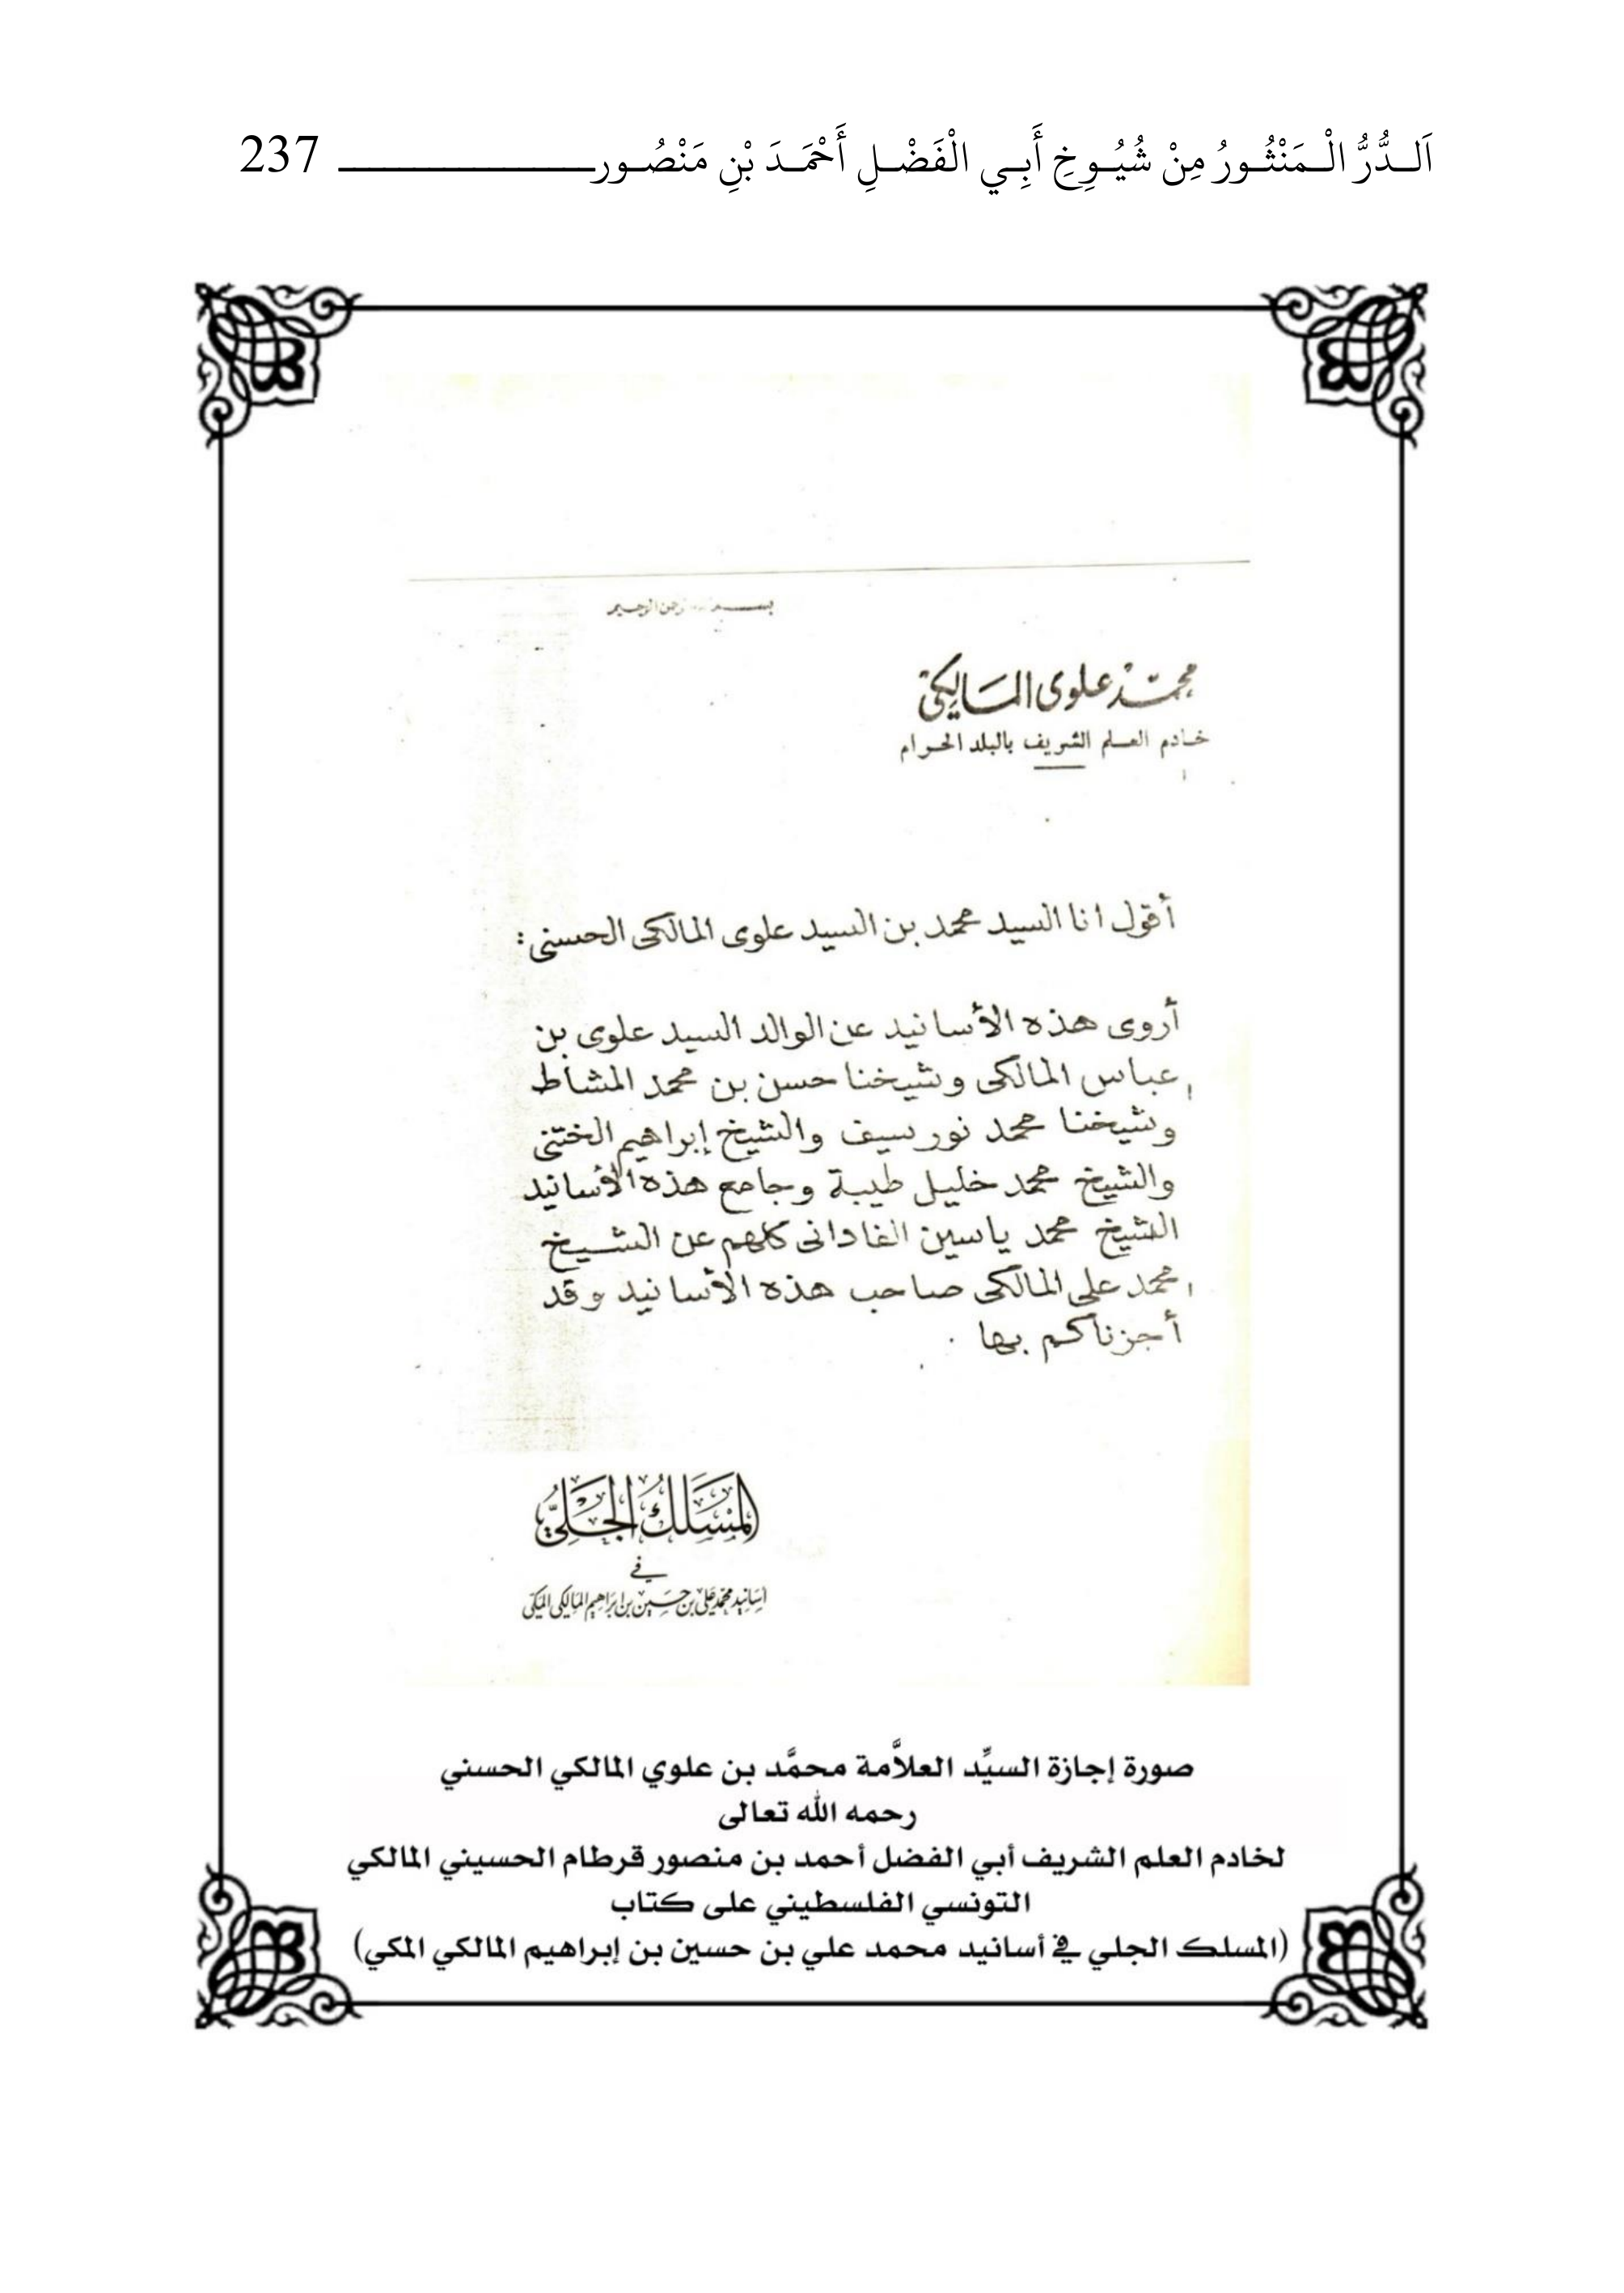 اَلـدُّرُّ الْـمَنْثُـورُ مِنْ شُيُـوخِ أَبِـي الْفَضْـلِ أَحْمَـدَ بْنِ مَنْصُـور 237
محمد علوى المالكى
خادم العلم الشريف بالبلد الحرام
أقول انا السيد محمد بن السيد علوى المالكى الحسنى:
أروى هذه الأسانيد عن الوالد السيد علوى بن
عباس المالكى وشيخنا حسن بن محمد المشاط
وشيخنا محمد نور سيف والشيخ إبراهيم الختنى
والشيخ محمد خليل طيبة وجامع هذه الأسانيد
الشيخ محمد ياسين الفادانى كلهم عن الشيخ
محمد على المالكى صاحب هذه الأسانيد وقد
أجزناكم بها .
المَسْلَكُ الجَلِيّ
في
أسانيد محمد علي بن حسين بن إبراهيم المالكي المكي
صورة إجازة السيِّد العلاَّمة محمَّد بن علوي المالكي الحسني
رحمه الله تعالى
لخادم العلم الشريف أبي الفضل أحمد بن منصور قرطام الحسيني المالكي
التونسي الفلسطيني على كتاب
(المسلك الجلي في أسانيد محمد علي بن حسين بن إبراهيم المالكي المكي)